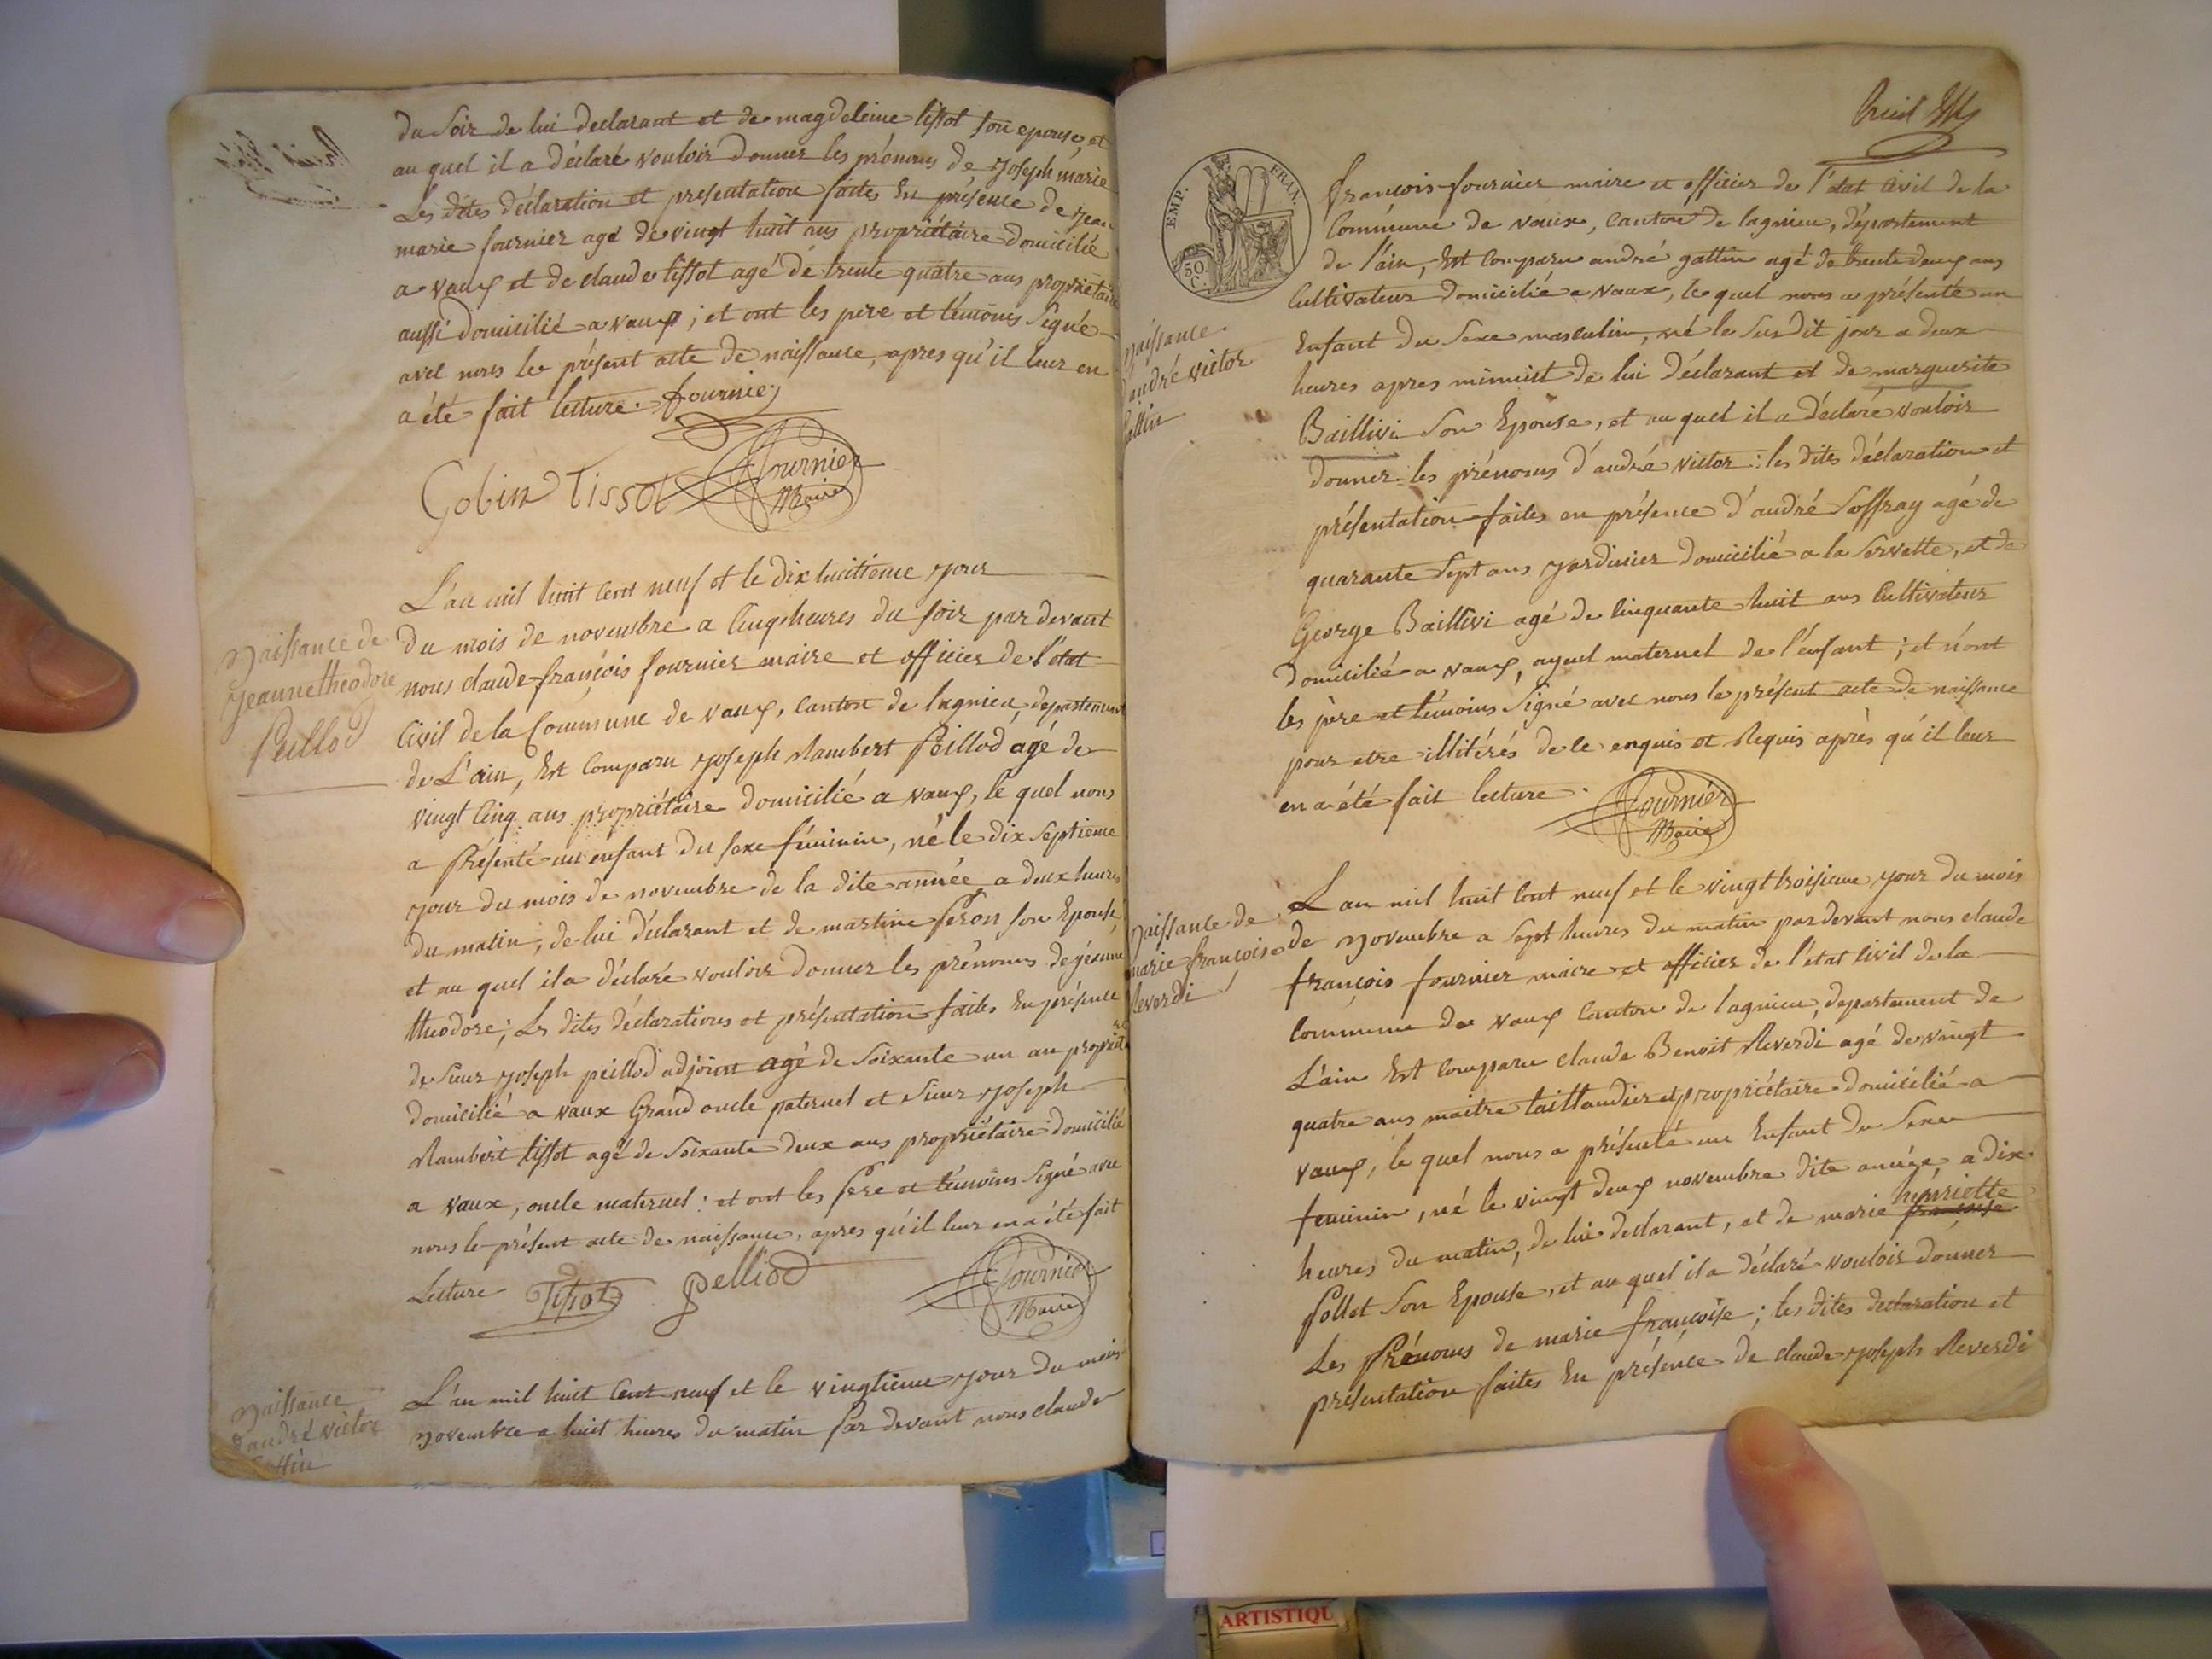 du soir de lui declarant et de magdeleine tissot son epouse, et
au quel il a déclaré vouloir donner les prénoms de joseph marie
Les dites déclaration et presentation faites En présence de jean
marie fournier agé de vingt huit ans propriétaire domicilié
a vaux et de claude tissot agé de trente quatre ans propriétaire
aussi domicilié a vaux ; et ont les pere et témoins signé
avec nous le présent acte de naissance, apres qu'il leur en
a été fait lecture. fournier
Gobin Tissot Fournier
Maire
L'an mil huit cent neuf et le dix huitieme jour
Naissance de
jeanne theodore
Peillod
du mois de novembre a cinq heures du soir par devant
nous claude-françois fournier maire et officier de l'état
Civil de la Commune de vaux, canton de lagnieu, departement
de L'ain, Est comparu joseph Rambert Peillod agé de
vingt cinq ans propriétaire domicilié a vaux, le quel nous
a Présenté un enfant du sexe féminin, né le dix septieme
jour du mois de novembre de la dite année a deux heures
du matin, de lui déclarant et de martine feron son Epouse,
et au quel il a déclaré vouloir donner les prénoms de jéanne
théodore ; Les dites déclarations et présentation faites En présence
de sieur joseph peillod adjoint agé de soixante un an propriétre
domicilié a vaux Grand oncle paternel et sieur joseph
Rambert tissot agé de soixante deux ans propriétaire domicilié
a vaux, oncle maternel : et ont les Pere et témoins signé avec
nous le présent acte de naissance, après qu'il leur en a été fait
Lecture Tissot pelliod Fournier
Maire
Naissance
d'andré victor
Gattin
L'an mil huit Cent neuf et le vingtieme jour du mois
novembre a huit heures du matin Par devant nous claude
huit
EMP. FRAN.
50.
C.
françois fournier maire et officier de l'état Civil de la
Commune de vaux, canton de lagnieu, département
de l'ain, Est comparu andré gattin agé de trente deux ans
Cultivateur domicilié a vaux, le quel nous a présenté un
Naissance
d'andré victor
Gattin
Enfant du sexe masculin, né le susdit jour a deux
heures apres minuit de lui déclarant et de marguerite
Baillivi son Epouse, et au quel il a déclaré vouloir
donner les prénoms d'andré victor : les dites déclaration et
présentation faites en présence d'andré soffray agé de
quarante sept ans jardinier domicilié a la servette, et de
George Baillivi agé de cinquante huit ans Cultivateur
domicilié a vaux, ayeul maternel de l'enfant ; et n'ont
les père et témoins signé avec nous le présent acte de naissance
pour etre illitérés de ce enquis et Requis après qu'il leur
en a été fait lecture. Fournier
Maire
L'an mil huit cent neuf et le vingt troisieme jour du mois
Naissance de
marie françoise
Reverdi
de Novembre a sept heures du matin par devant nous claude
françois fournier maire et officier de l'état civil de la
commune de vaux Canton de lagnieu, departement de
L'ain Est comparu claude Benoit Reverdi agé de vingt
quatre ans maitre taillandier et propriétaire domicilié a
vaux, le quel nous a présenté un Enfant du Sexe
feminin, né le vingt deux novembre dite année, a dix
heures du matin, de lui declarant, et de marie henriette françoise
Pollet son Epouse, et au quel il a déclaré vouloir donner
Les Prénoms de marie françoise ; les dites declaration et
présentation faites En présence de claude joseph Reverdi
ARTISTIQU